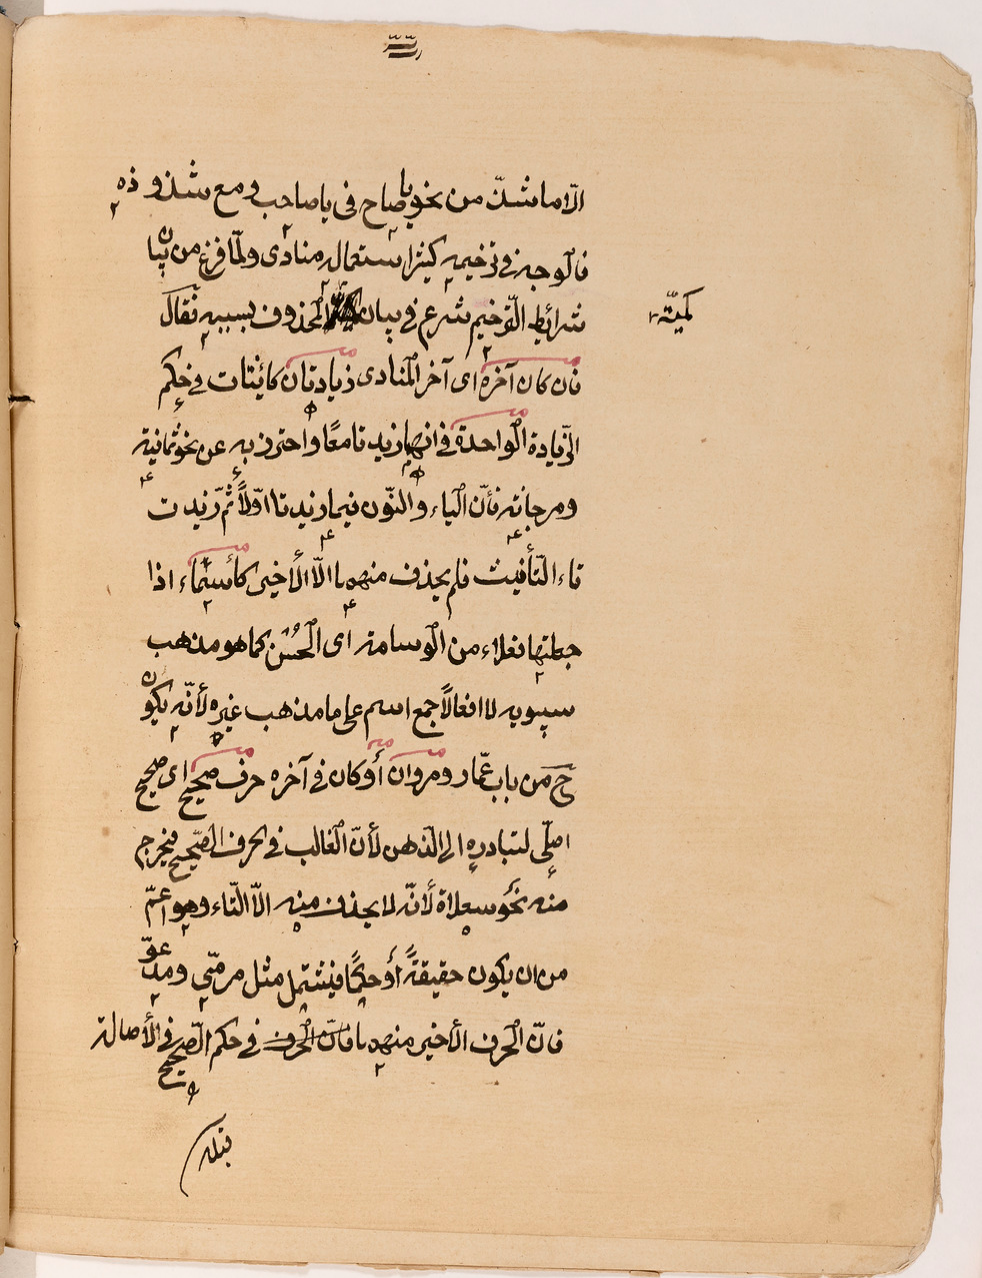 الّا ما شذّ من نحو يا صاح فى يا صاحب ومع شذوذه
فالوجه فى ترخيمه كثرة استعماله منادى ولمّا فرغ من بيان
شرائط التّرخيم شرع فى بيان المحذوف بسببه فقال
كميّة
فان كان آخره اى آخر المنادى زيادتان كائنتان فى حكم
الزّيادة الواحدة فى انهما زيدتا معًا واحترز به عن نحو ثمانية
ومرجانة فأنّ الياء والنّون فيهما زيدتا اوّلاً ثمّ زيدت
تاء التّأنيث فلم يحذف منهما الّا الأخير كأسماء اذا
جعلتها فعلاء من الوسامة اى الحُسْن كما هو مذهب
سيبويه لا افعالاً جمع اسم على ما مذهب غيره لأنّه يكون
ح من باب عمّار ومروان أو كان فى آخره حرف صحيح اى صحيح
اصلّى لتبادره الى الذهن لأنّ الغالب فى الحرف الصّحيح فيخرج
منه نحو سعلاة لأنّه لا يحذف منه الّا التّاء وهو اعمّ
من ان يكون حقيقةً أو حكمًا فيشتمل مثل مرمّى ومدعوّ
فانّ الحرف الأخير منهما فانّ الحرف فى حكم الصّحيح فى الأصالة